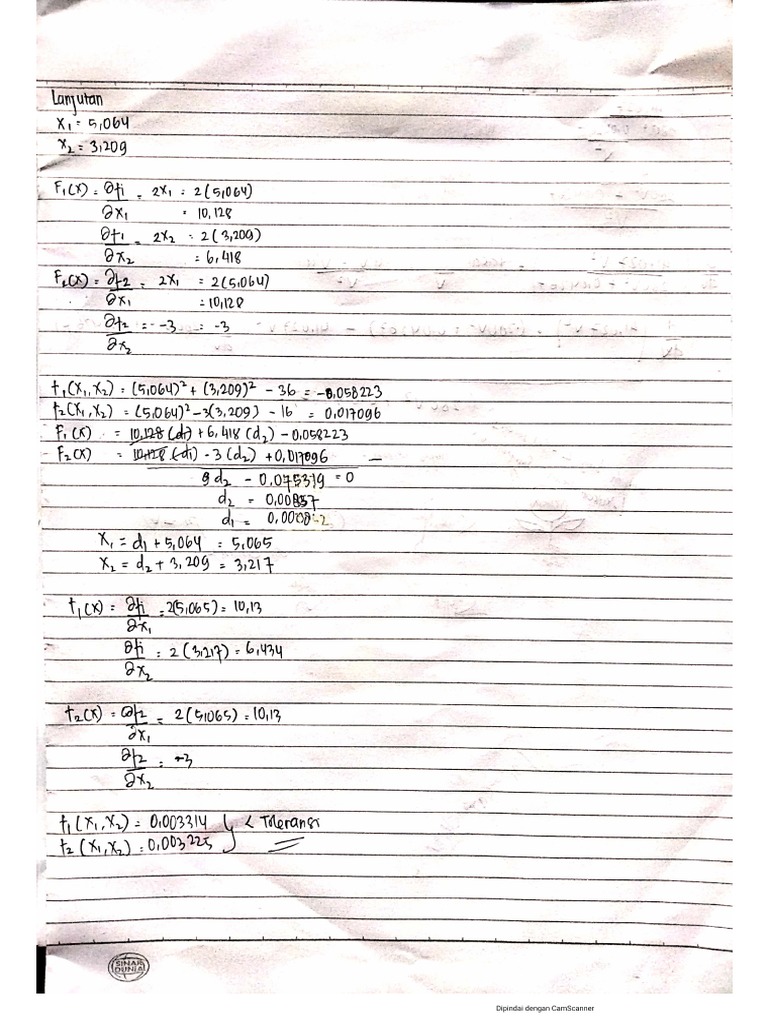 Lanjutan
X₁ = 5,064
X₂ = 3,209
F₁(X) = ∂f₁/∂X₁ = 2X₁ = 2(5,064)
= 10,128
∂f₁/∂X₂ = 2X₂ = 2(3,209)
= 6,418
F₂(X) = ∂f2/∂X₁ = 2X₁ = 2(5,064)
= 10,128
∂f₂/∂X₂ = -3 = -3
f₁(X₁,X₂) = (5,064)² + (3,209)² - 36 = -0,058223
f₂(X₁,X₂) = (5,064)² - 3(3,209) - 16 = 0,017096
F₁(X) = 10,128(d₁) + 6,418(d₂) - 0,058223
F₂(X) = 10,128(d₁) - 3(d₂) + 0,017096 -
9d₂ - 0,075319 = 0
d₂ =
d₁ =
X₁ = d₁ + 5,064 = 5,065
X₂ = d₂ + 3,209 = 3,217
f₁(X) = ∂f₁/∂X₁ = 2(5,065) = 10,13
∂f₁/∂X₂ = 2(3,217) = 6,434
f₂(X) = ∂f₂/∂X₁ = 2(5,065) = 10,13
∂f₂/∂X₂ = -3
f₁(X₁,X₂) = 0,003314 } < Toleransi
f₂(X₁,X₂) = 0,003225
SINAR
DUNIA
Dipindai dengan CamScanner